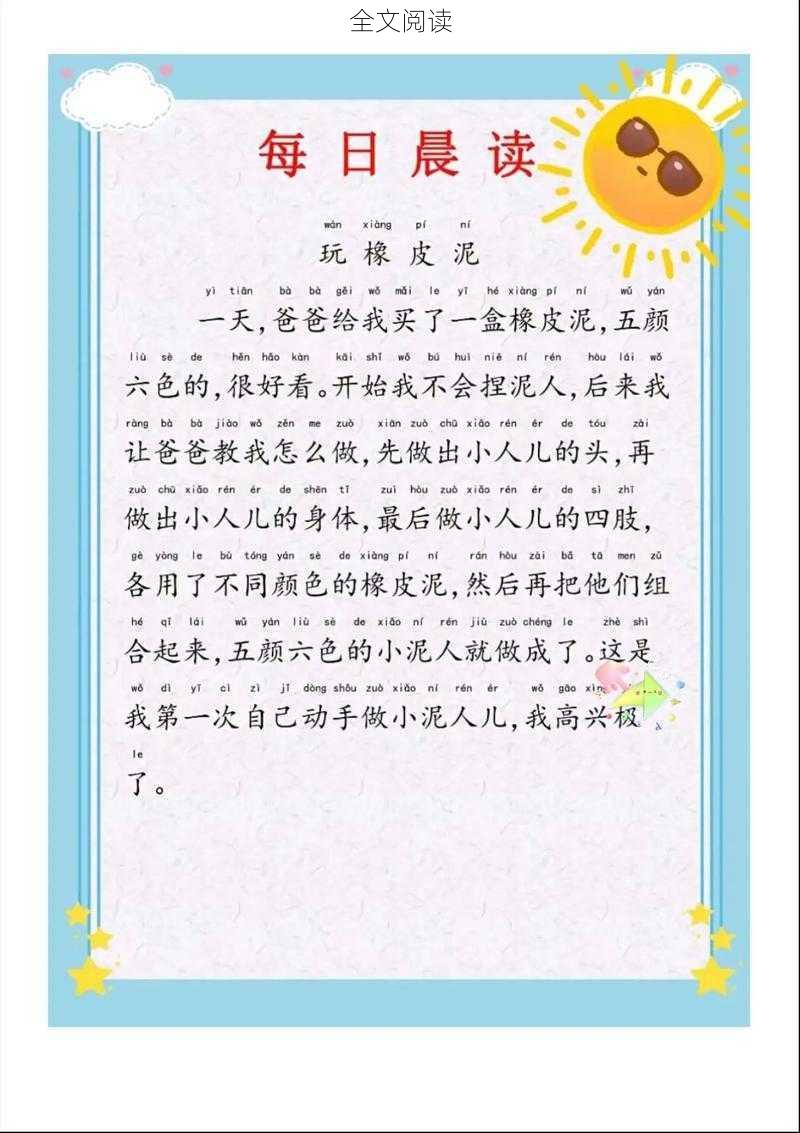 全文阅读
每日晨读
wán xiàng pí ní
玩橡皮泥
yì tiān bà bà gěi wǒ mǎi le yī hé xiàng pí ní wǔ yán
一天,爸爸给我买了一盒橡皮泥,五颜
liù sè de hěn hǎo kàn kāi shǐ wǒ bú huì niē ní rén hòu lái wǒ
六色的,很好看。开始我不会捏泥人,后来我
ràng bà bà jiào wǒ zěn me zuò xiān zuò chū xiǎo rén ér de tóu zài
让爸爸教我怎么做,先做出小人儿的头,再
zuò chū xiǎo rén ér de shēn tǐ zuì hòu zuò xiǎo rén ér de sì zhī
做出小人儿的身体,最后做小人儿的四肢,
gè yòng le bù tóng yán sè de xiàng pí ní rán hòu zài bǎ tā men zǔ
各用了不同颜色的橡皮泥,然后再把他们组
hé qǐ lái wǔ yán liù sè de xiǎo ní rén jiù zuò chéng le zhè shì
合起来,五颜六色的小泥人就做成了。这是
wǒ dì yī cì zì jǐ dòng shǒu zuò xiǎo ní rén ér wǒ gāo
我第一次自己动手做小泥人儿,我高兴极
le
了。